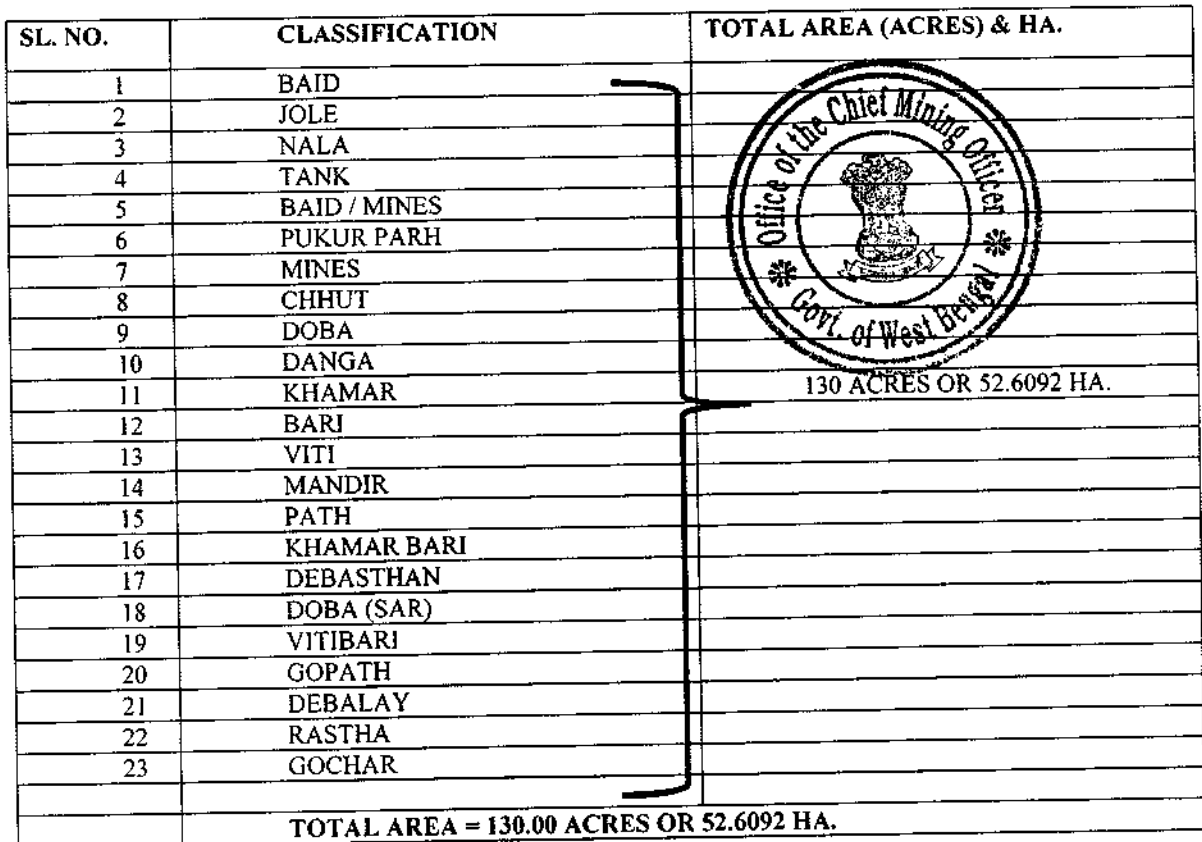 SL. NO. CLASSIFICATION TOTAL AREA (ACRES) & HA.
1 BAID
2 JOLE
3 NALA
4 TANK
5 BAID / MINES
6 PUKUR PARH
7 MINES
8 CHHUT
9 DOBA
10 DANGA
11 KHAMAR 130 ACRES OR 52.6092 HA.
12 BARI
13 VITI
14 MANDIR
15 PATH
16 KHAMAR BARI
17 DEBASTHAN
18 DOBA (SAR)
19 VITIBARI
20 GOPATH
21 DEBALAY
22 RASTHA
23 GOCHAR
TOTAL AREA = 130.00 ACRES OR 52.6092 HA.
Office of the Chief Mining Officer
Govt. of West Bengal